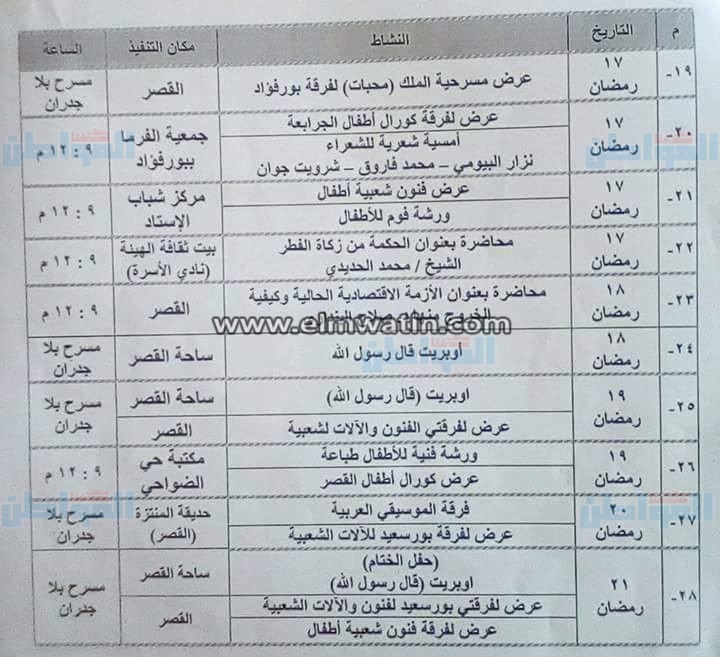 م التاريخ النشاط مكان التنفيذ الساعة
١٩- ١٧ رمضان عرض مسرحية الملك (محبات) لفرقة بورفؤاد القصر مسرح بلا جدران
٢٠- ١٧ رمضان عرض لفرقة كورال أطفال الجرابعة جمعية الفرما ببورفؤاد ٩ : ١٢ م
أمسية شعرية للشعراء
نزار البيومي – محمد فاروق – شرويت جوان
٢١- ١٧ رمضان عرض فنون شعبية أطفال مركز شباب الإستاد ٩ : ١٢ م
ورشة فوم للأطفال
٢٢- ١٧ رمضان محاضرة بعنوان الحكمة من زكاة الفطر بيت ثقافة الهيئة (نادي الأسرة) ٩ : ١٢ م
الشيخ / محمد الحديدي
٢٣- ١٨ رمضان محاضرة بعنوان الأزمة الاقتصادية الحالية وكيفية القصر ٩ : ١٢ م
الخروج منها صلاح
www.elmwatin.com
٢٤- ١٨ رمضان اوبريت قال رسول الله ساحة القصر مسرح بلا جدران
٢٥- ١٩ رمضان اوبريت (قال رسول الله) ساحة القصر مسرح بلا جدران
عرض لفرقتي الفنون والآلات لشعبية القصر
٢٦- ١٩ رمضان ورشة فنية للأطفال طباعة مكتبة حي الضواحي ٩ : ١٢ م
عرض كورال أطفال القصر
٢٧- ٢٠ رمضان فرقة الموسيقي العربية حديقة المنتزة (القصر) مسرح بلا جدران
عرض لفرقة بورسعيد للآلات الشعبية
٢٨- ٢١ رمضان (حفل الختام) ساحة القصر مسرح بلا جدران
اوبريت (قال رسول الله)
عرض لفرقتي بورسعيد لفنون والآلات الشعبية القصر
عرض لفرقة فنون شعبية أطفال
المواطن
المواطن
المواطن
المواطن
المواطن